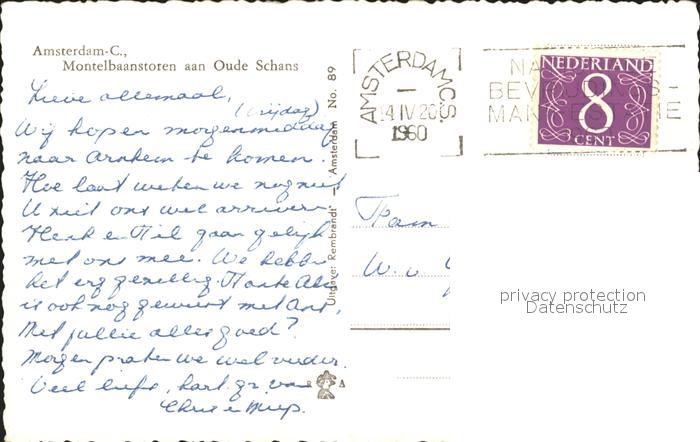 Amsterdam-C.,
Montelbaanstoren aan Oude Schans
Lieve allemaal,
(vrijdag)
Wij hopen morgenmiddag
naar Arnhem te komen.
Hoe laat weten we nog niet
U ziet ons wel arriveren
Henk en Til gaan gelijk
met ons mee. We hebben
het erg gezellig. Tante
is ook nog geweest met
Met jullie alles goed?
Morgen praten we wel verder.
Veel liefs, hart. gr. van
en Miep.
Uitgave: Rembrandt - Amsterdam No. 89
R A
AMSTERDAM C.S.
14 IV 20
1960
NA
BEV
MAK E
NEDERLAND
8
CENT
Fam
W. v
privacy protection
Datenschutz